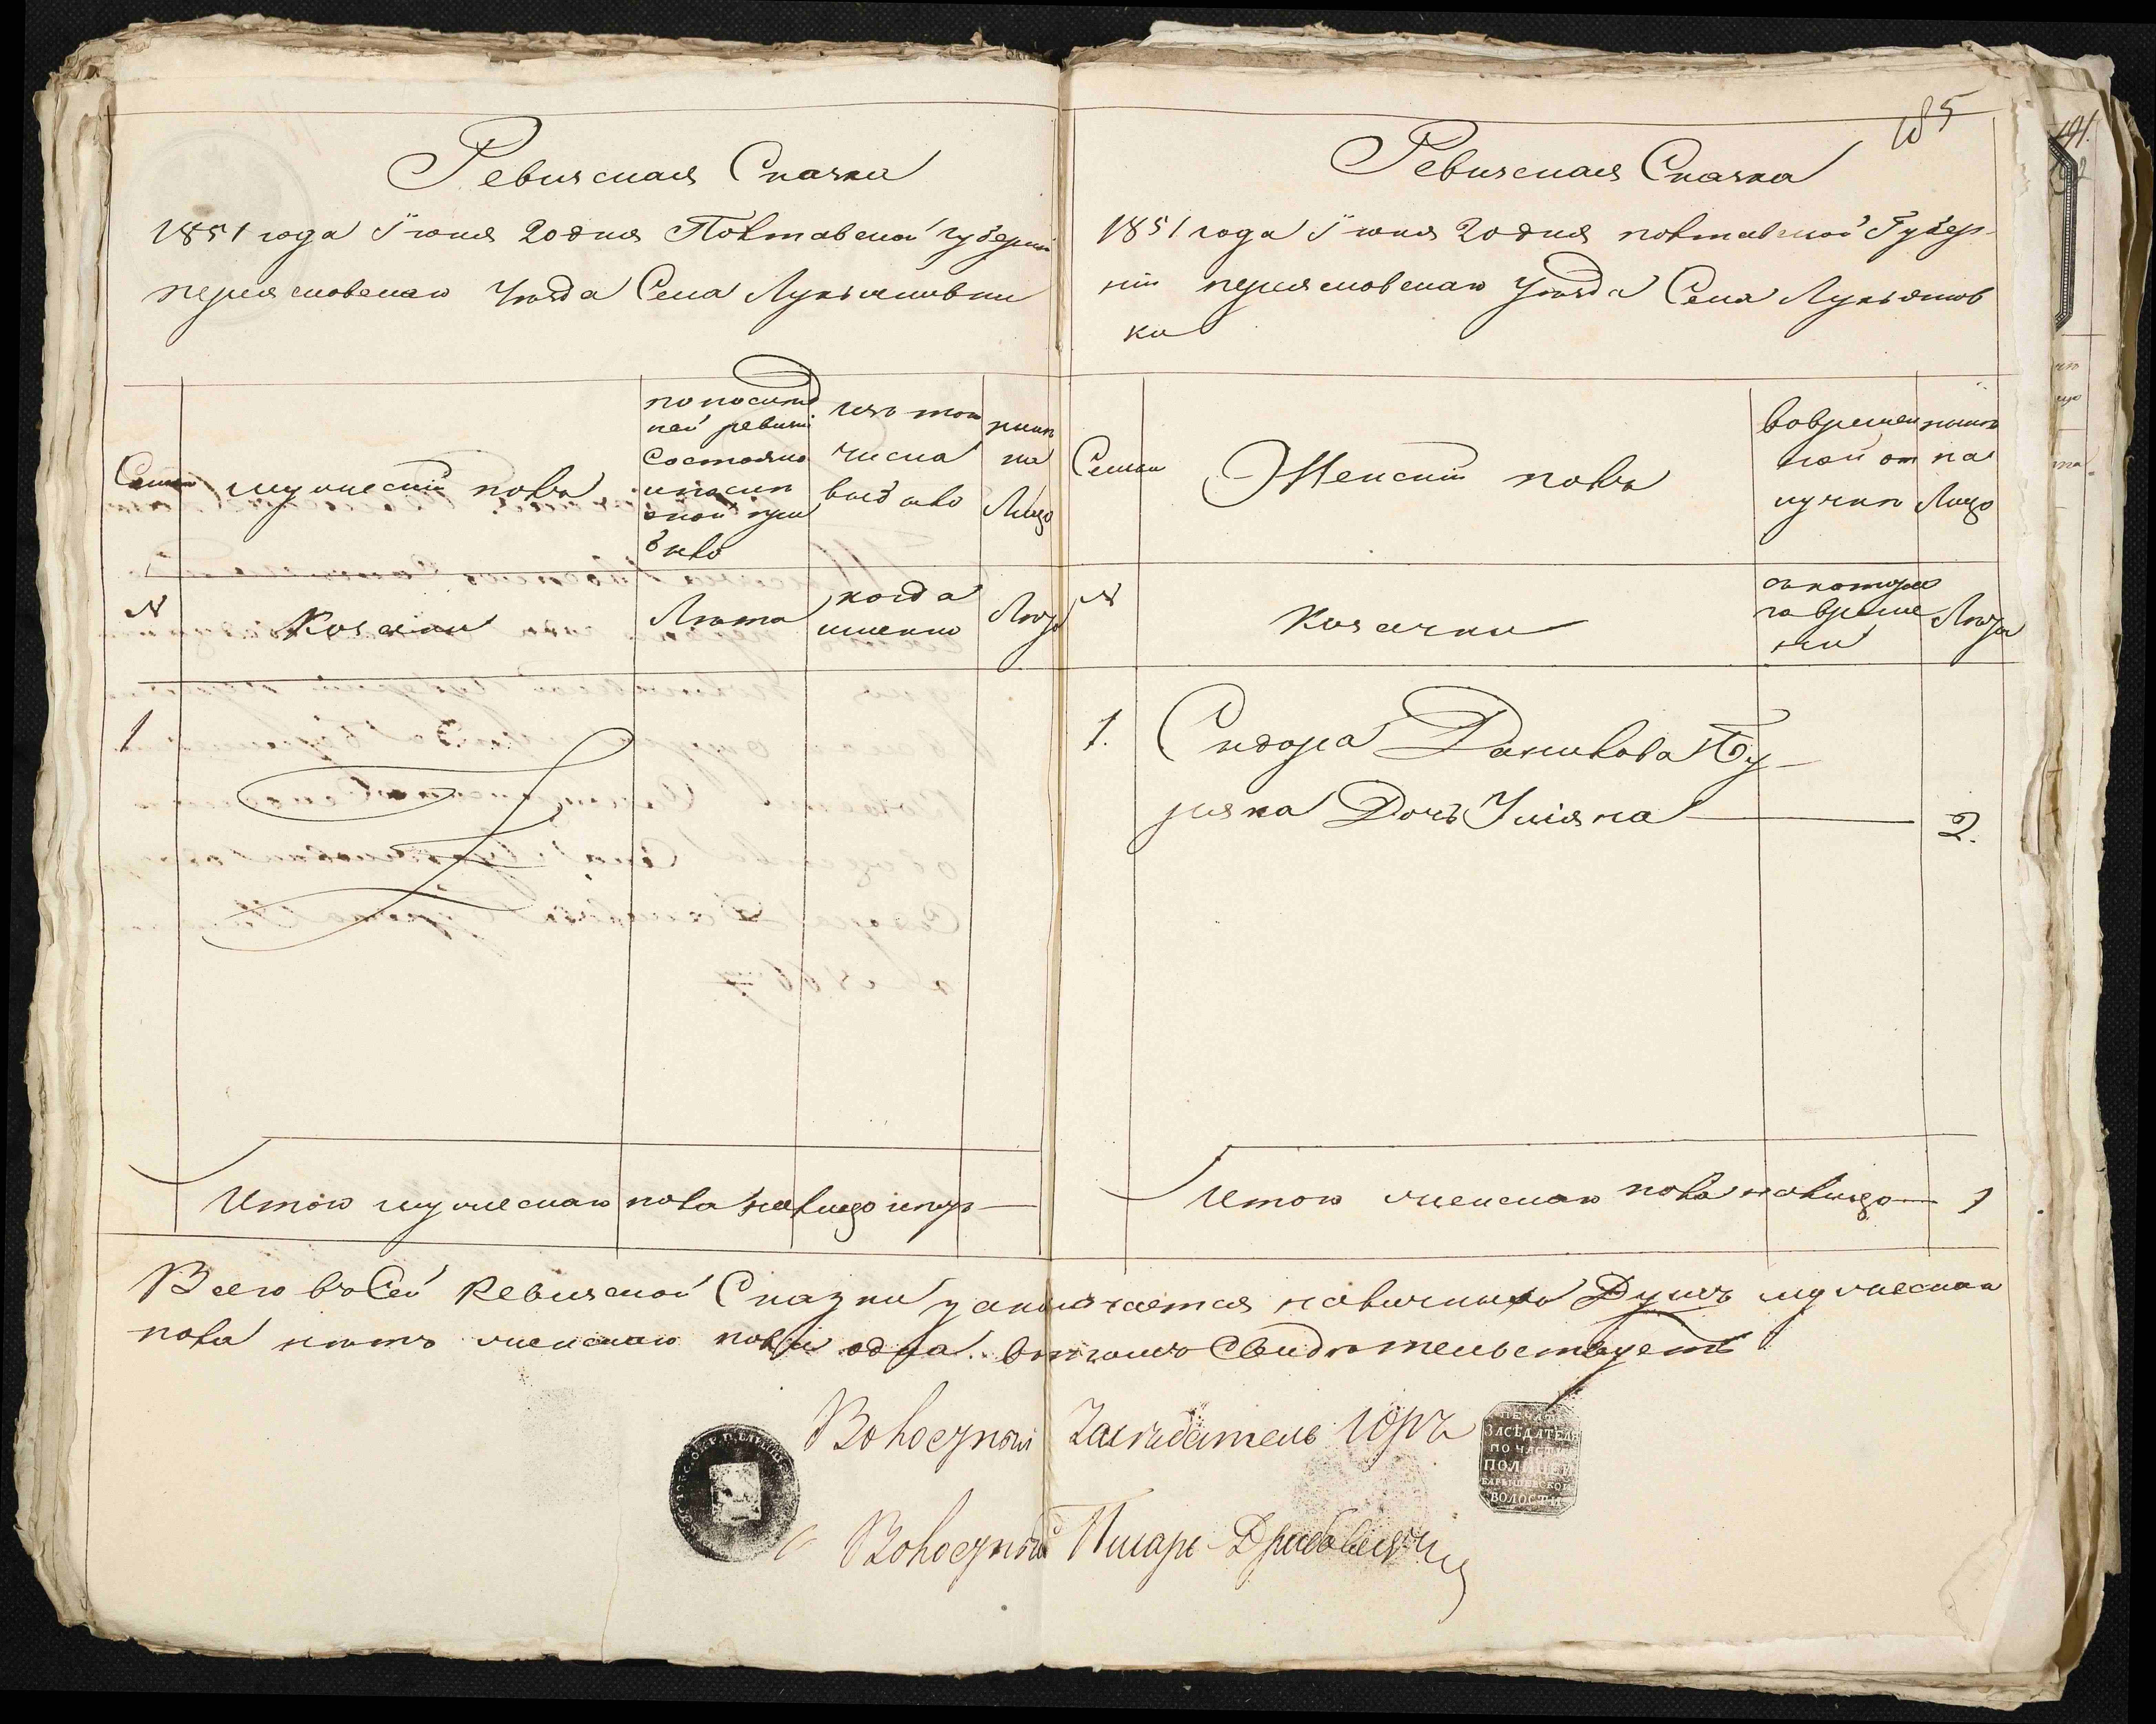 185
Ревизская Сказка
1851 года Іюня 20 дня Полтавской губерніи
переясловскаго Уезда Села Лукьяновки
Семьи
мужескій полъ
по послед
ней ревизіи
состояло
и после
оной при
было
изъ того
числа
выбыло
ныне
на
Лицо
№
Козаки
Лета
когда
именно
Лета
1
Итого мужескаго пола налицо нетъ
Ревизская Сказка
1851 года Іюня 20 дня полтавской Губер-
ніи переясловскаго Уезда Села Лукьянов
ки
Семьи
Женскій полъ
во времен
ной от
лучке
ныне
на
Лицо
№
Козачки
съ котора
го време
ни
Лета
1. Сидора Данилова
Дочь Уліяна 2.
Итого женскаго пола налицо 1
Всего въ Сей Ревизской Сказки заключается наличныхъ Душъ мужескаго
пола нетъ женскаго пола одна. въ чемъ Свидетельствуетъ
Волосный Заседатель
ПЕЧАТЬ
ЗАСЕДАТЕЛЯ
ПО ЧАСТИ
ПОЛИЦЕЙ
БАРЫШЕВСКОЙ
ВОЛОСТИ
Волосный Писарь